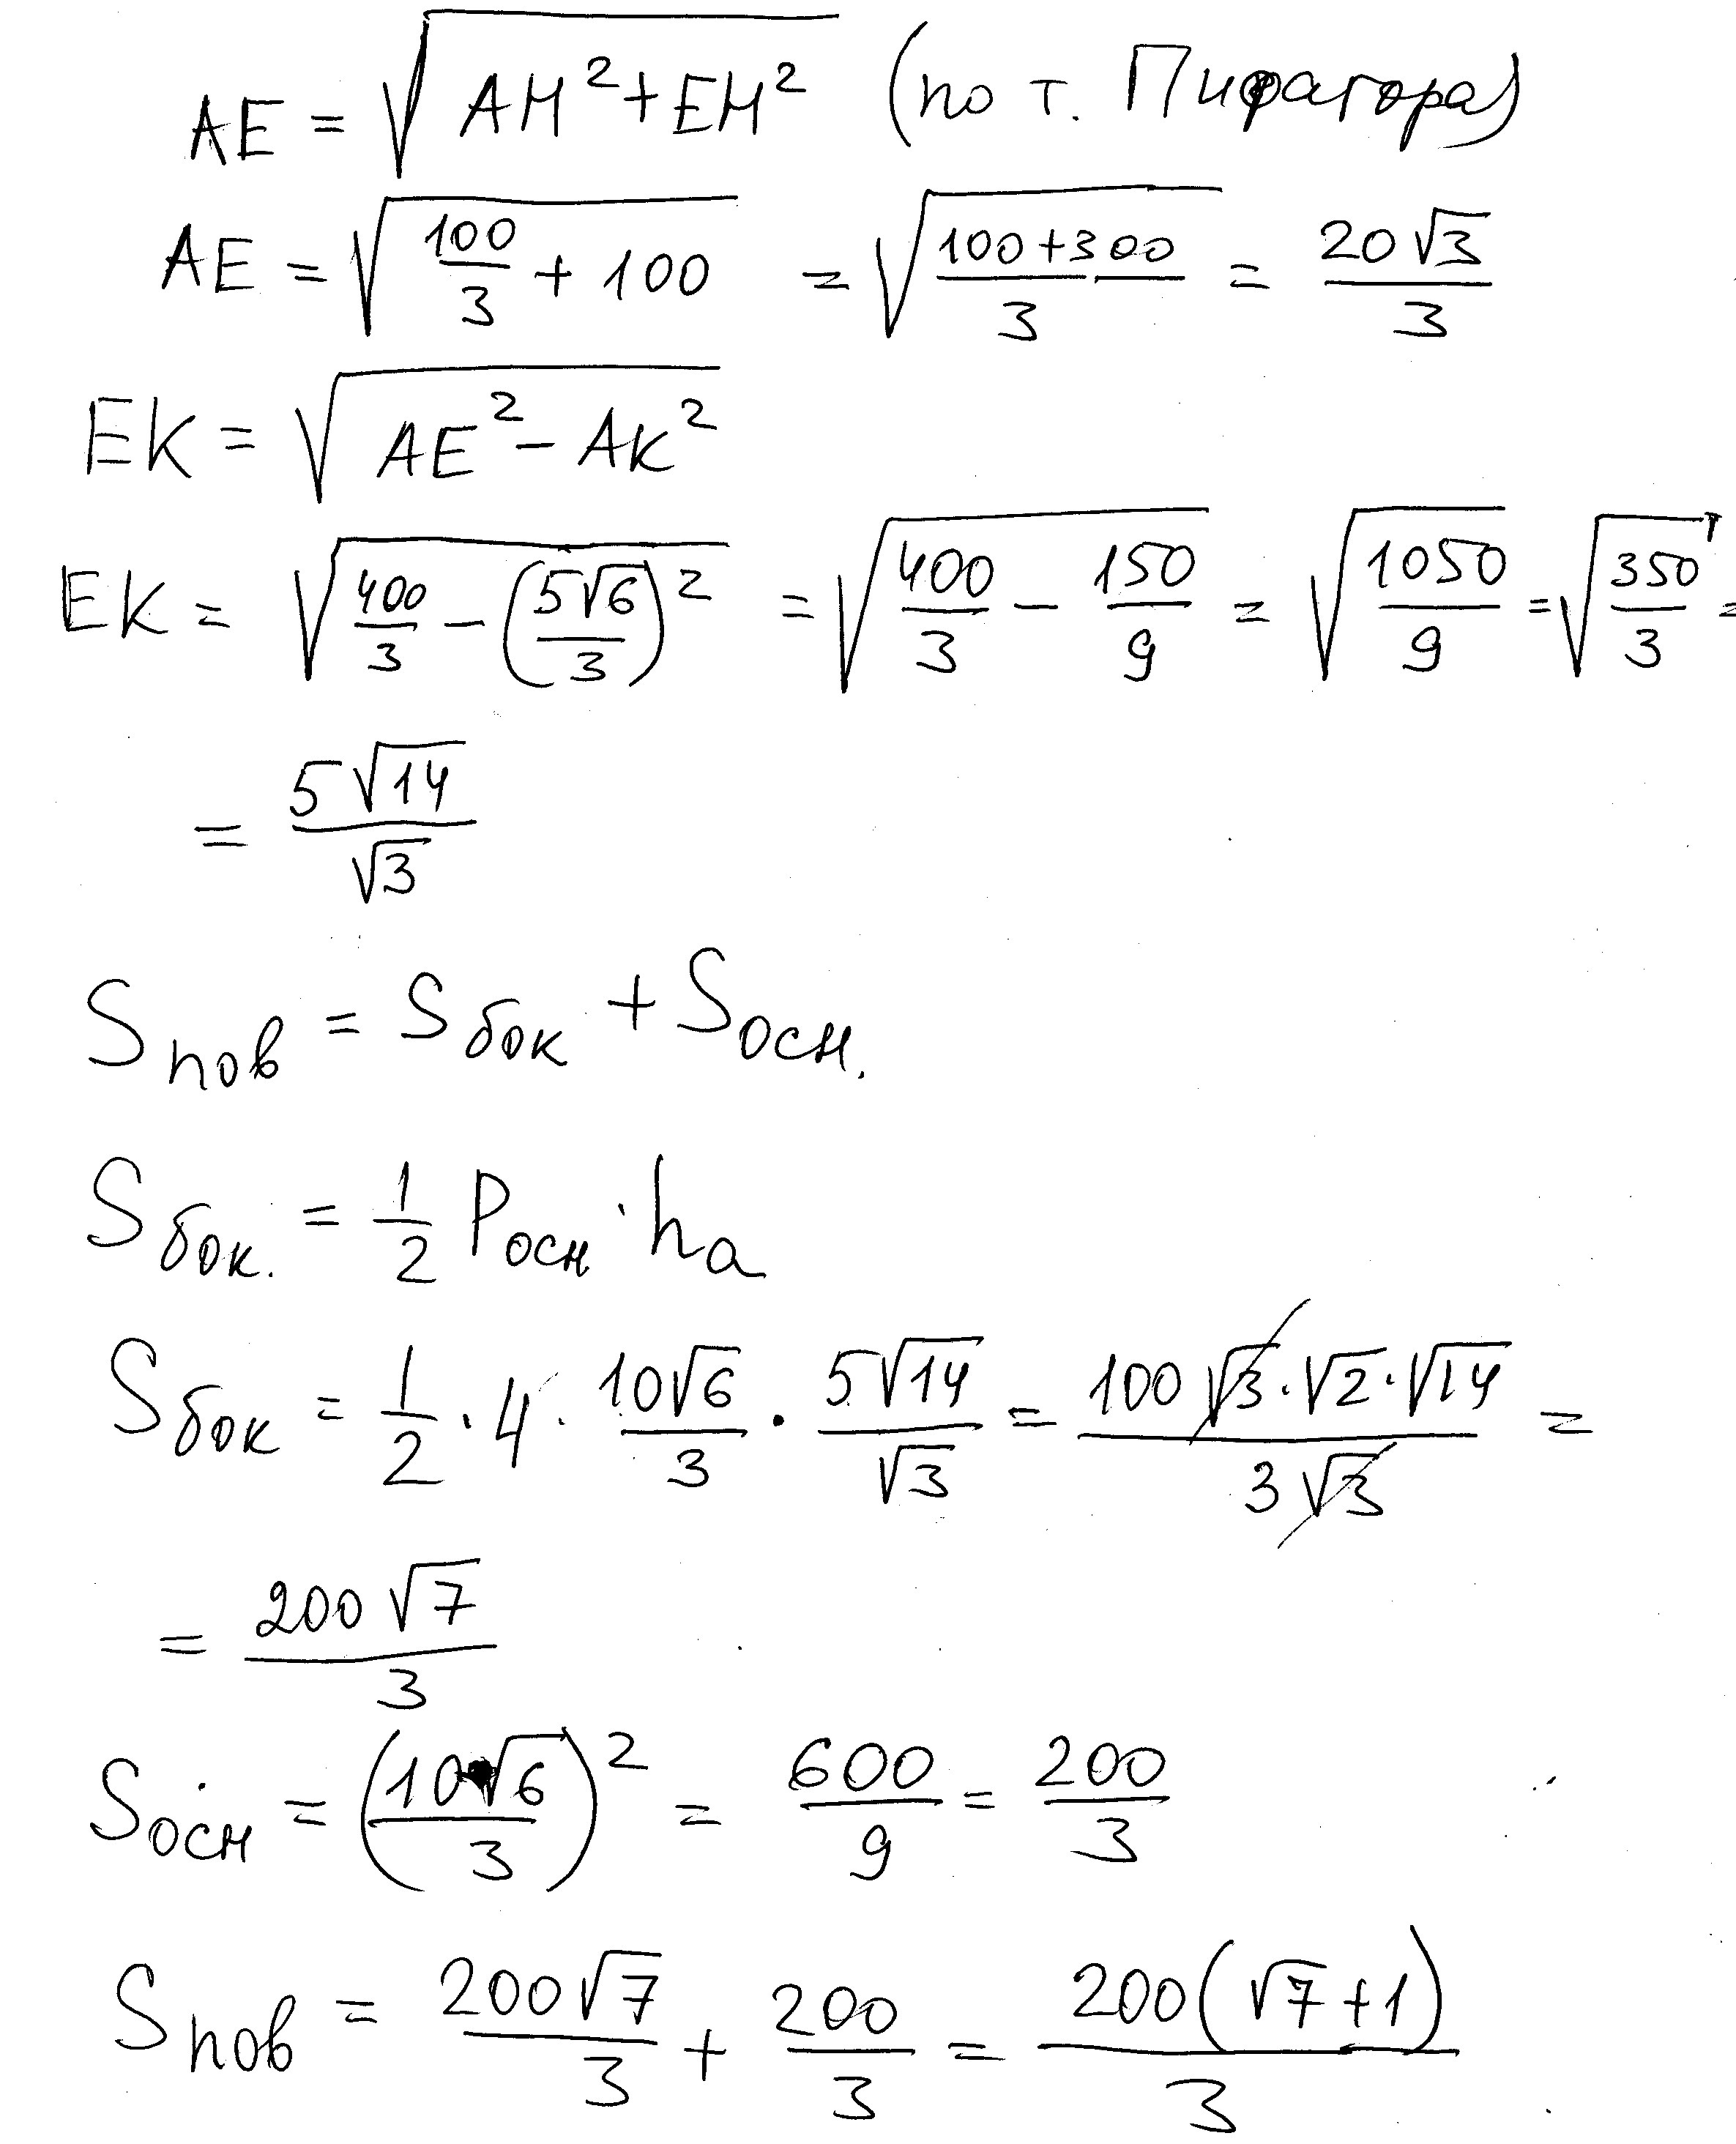 AE = √(AH² + EH²) (по т. Пифагора)
AE = √(100/3 + 100) = √((100+300)/3) = 20√3/3
EK = √(AE² - AK²)
EK = √(400/3 - (5√6/3)²) = √(400/3 - 150/9) = √(1050/9) = √(350/3) =
= 5√14/√3
Sпов = Sбок + Sосн.
Sбок. = 1/2 Pосн · ha
Sбок = 1/2 · 4 · 10√6/3 · 5√14/√3 = 100√3·√2·√14/3√3 =
= 200√7/3
Sосн = (10√6/3)² = 600/9 = 200/3
Sпов = 200√7/3 + 200/3 = 200(√7+1)/3